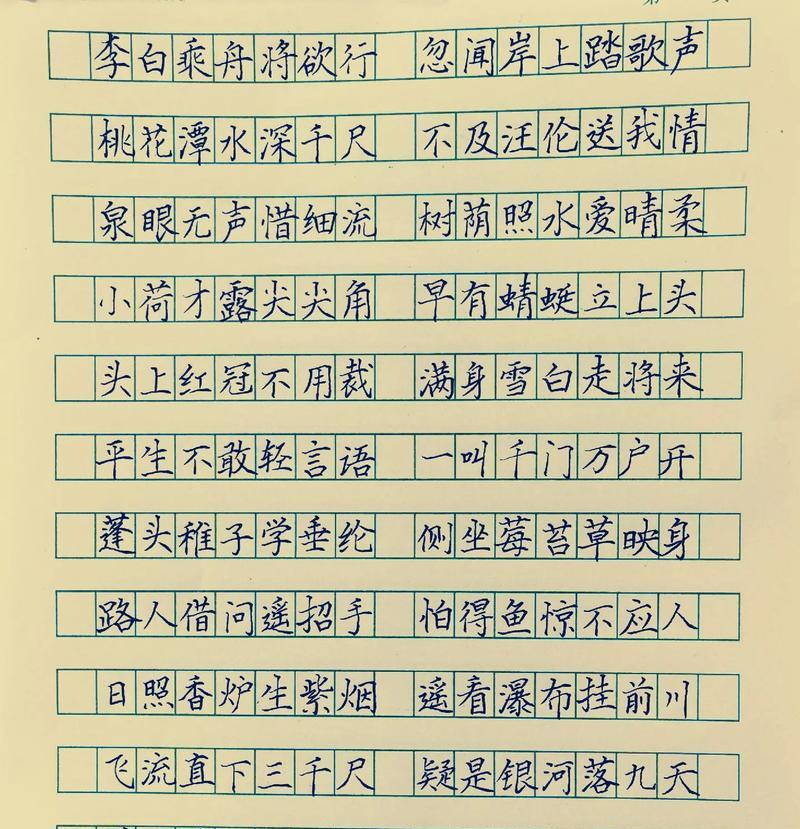 李白乘舟将欲行 忽闻岸上踏歌声
桃花潭水深千尺 不及汪伦送我情
泉眼无声惜细流 树荫照水爱晴柔
小荷才露尖尖角 早有蜻蜓立上头
头上红冠不用裁 满身雪白走将来
平生不敢轻言语 一叫千门万户开
蓬头稚子学垂纶 侧坐莓苔草映身
路人借问遥招手 怕得鱼惊不应人
日照香炉生紫烟 遥看瀑布挂前川
飞流直下三千尺 疑是银河落九天